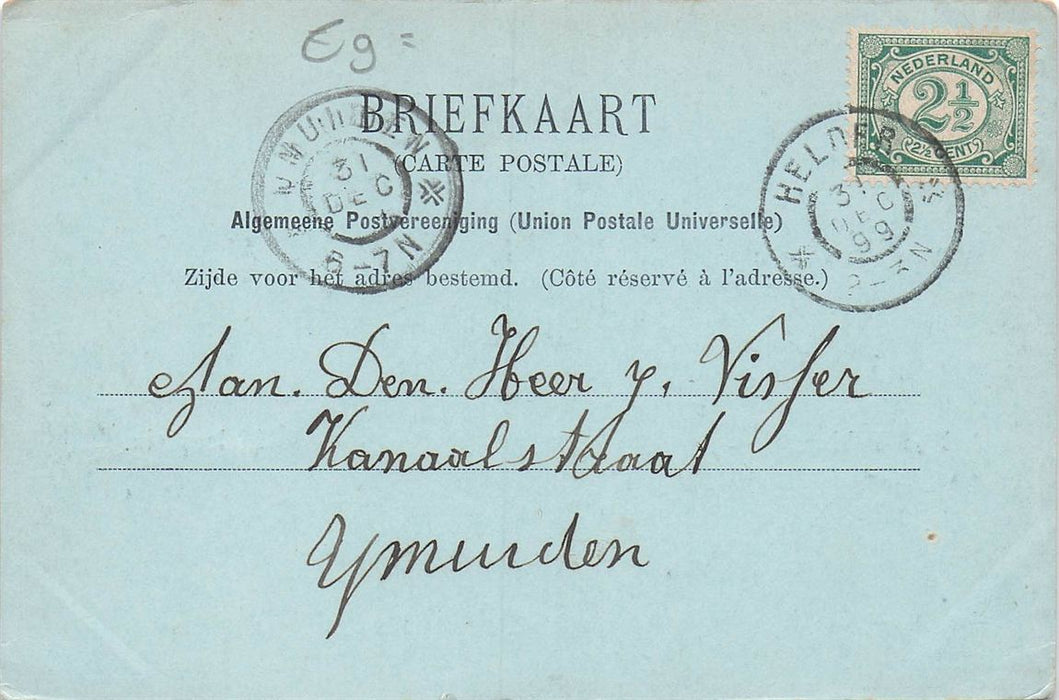 Eg =
BRIEFKAART
(CARTE POSTALE)
Algemeene Postvereeniging (Union Postale Universelle)
Zijde voor het adres bestemd. (Côté réservé à l'adresse.)
NEDERLAND
2½
2½ CENT
HELDER
31
DEC
99
2-3N
IJMUIDEN
31
DEC
6-7N
Aan. Den. Heer y. Visser
Kanaalstraat
Ymuiden